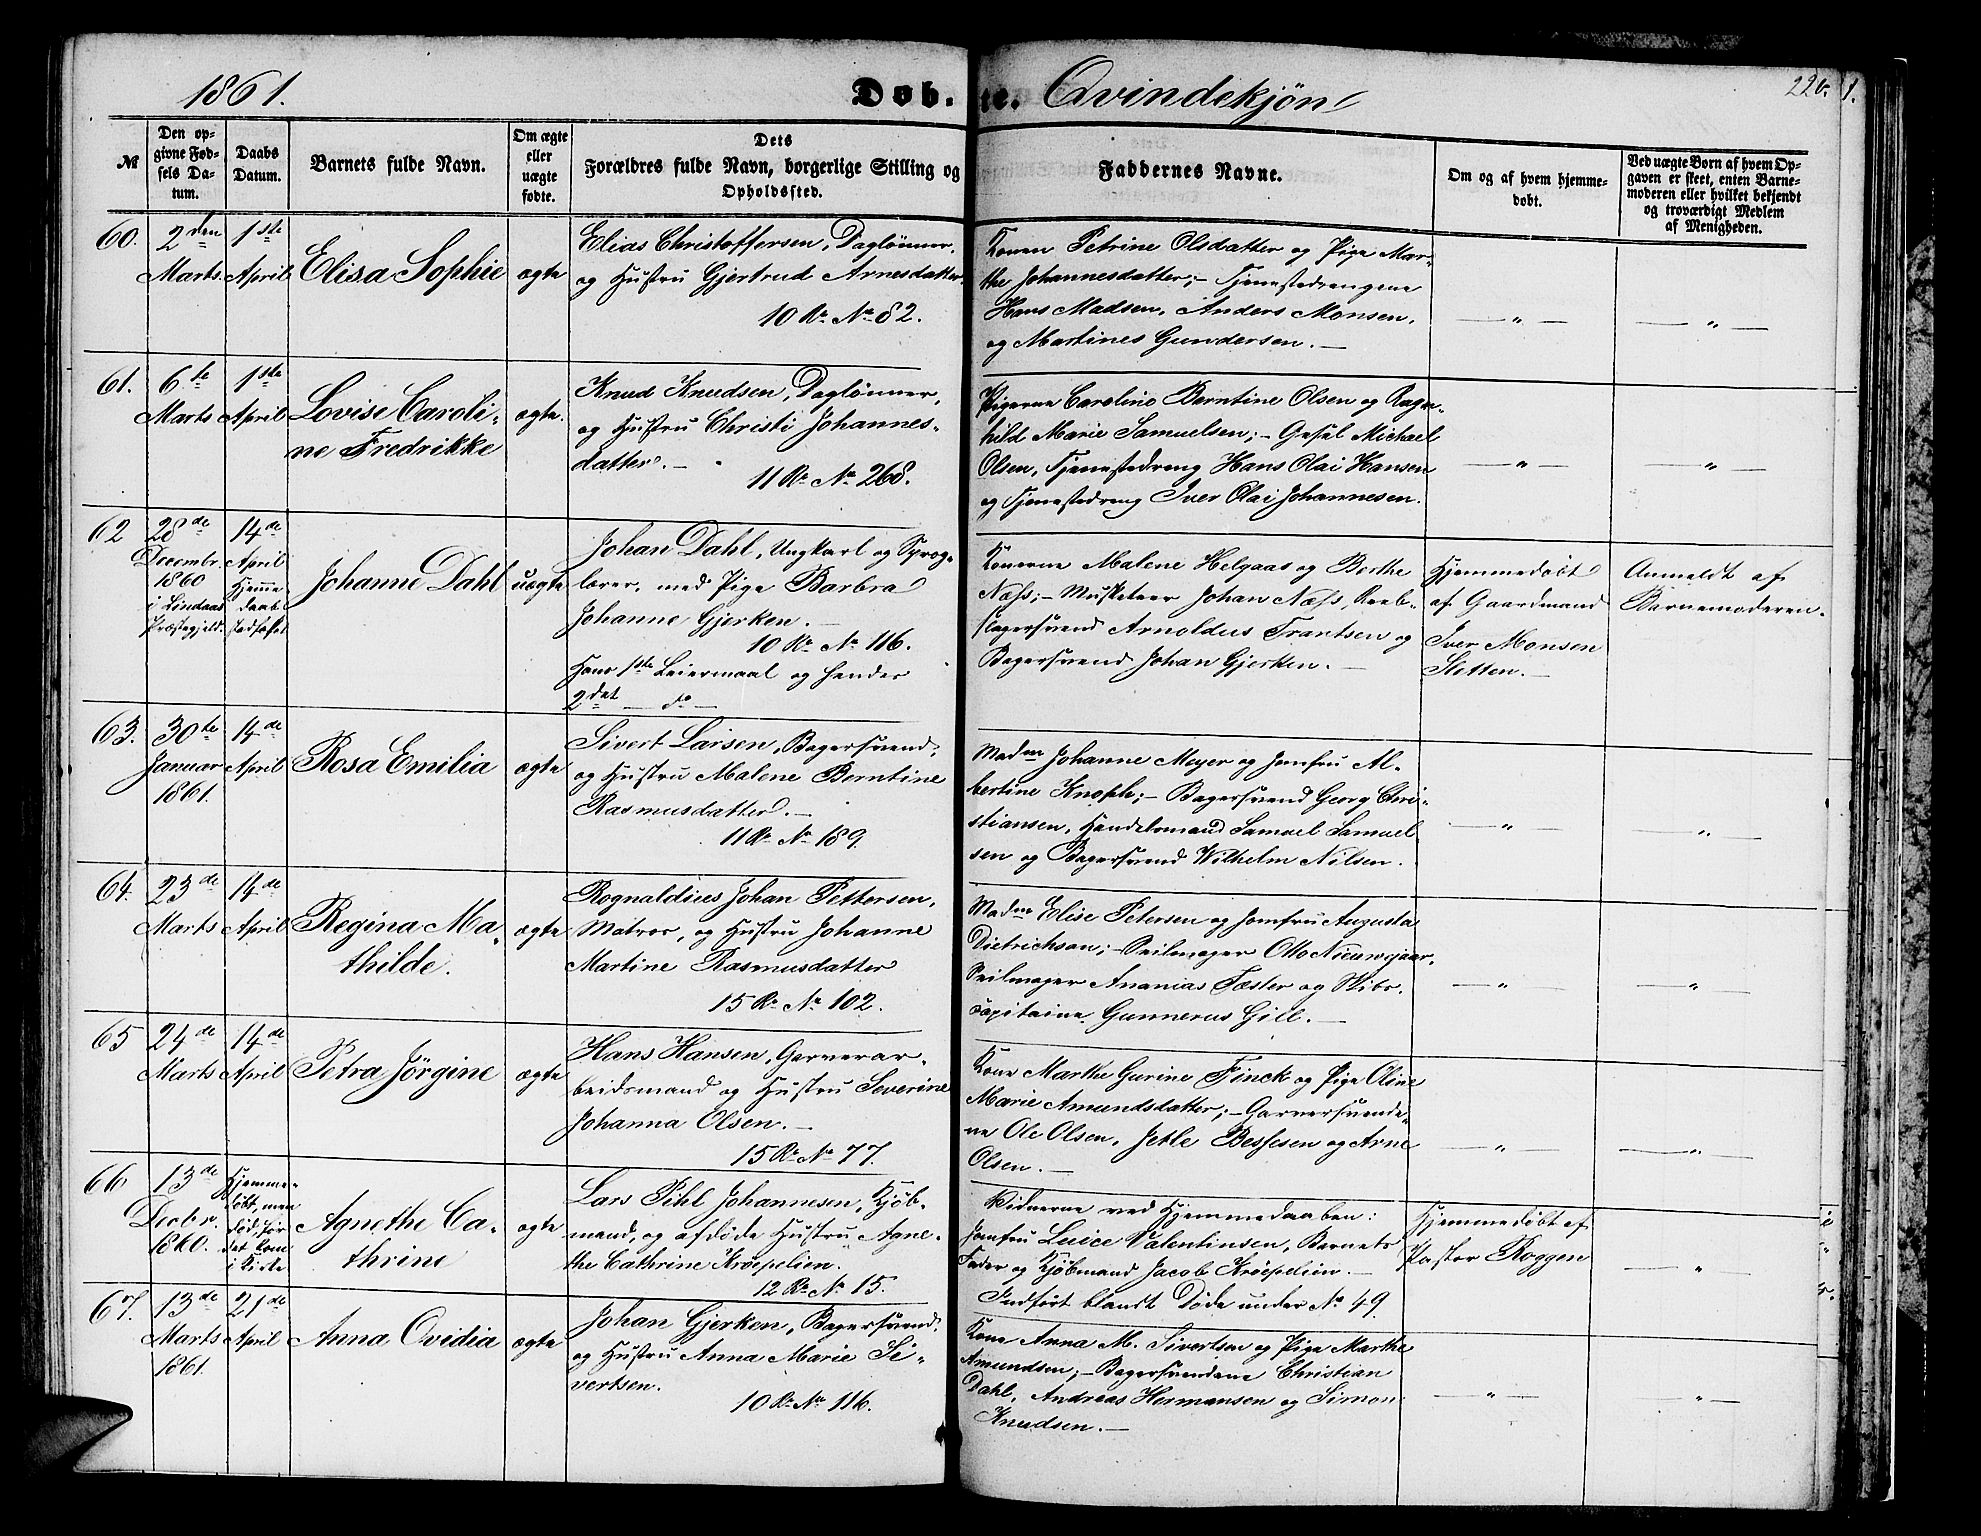 1861. Døb.te. Qvindekjøn 226. 1.
№
Den opgivne Fødsels Datum.
Daabs Datum.
Barnets fulde Navn.
Om ægte eller uægte fødte.
Dets Forældres fulde Navn, borgerlige Stilling og Opholdssted.
Faddernes Navne.
Om og af hvem hjemmedøbt.
Ved uægte Børn af hvem Opgaven er skeet, enten Barnemoderen eller hvilket bekjendt og troværdigt Medlem af Menigheden.
60. 2den Marts. 1ste April
Elisa Sophie
ægte
Elias Christoffersen, Daglønner,
og Hustru Gjertrud Arnesdatter.
10 R. No 82.
Konen Petrine Olsdatter og Pige Mar-
the Johannesdatter; - Tjenestedrengene
Hans Madsen, Anders Monsen,
og Martines Gundersen. —
— „ —
— „ —
61. 6te Marts 1ste April
Lovise Caroli-
ne Fredrikke
ægte.
Knud Knudsen, Daglønner,
og Hustru Christi Johannes-
datter. —
11 R. No 268.
Pigerne Caroline Berntine Olsen og Ragn-
hild Marie Samuelsen; - Gesel Michael
Olsen, Tjenestedreng Hans Olai Hansen
og Tjenestedreng Iver Olai Johannesen.
— „ —
— „ —
62 28de Decembr. 1860 i Lindaas Præstegjeld.
14de April Hjemmedaab stadfæstet
Johanne Dahl
uægte
Johan Dahl, Ungkarl og Sprog-
lærer, med Pige Barbra
Johanne Gjerken. —
10 R. No 116.
Hans 1ste Leiermaal og hendes
2det — do —
Konerne Malene Helgaas og Berthe
Næss; - Musketeer Johan Næss, Reeb-
slagersvend Arnoldus Frantsen og
Bagersvend Johan Gjerken. —
Hjemmedøbt
af Gaardmand
Iver Monsen
Sletten. —
Anmeldt af
Barnemoderen.
63. 30te Januar 1861. 14de April
Rosa Emilia
ægte
Sivert Larsen, Bagersvend,
og Hustru Malene Berntine
Rasmusdatter. —
11 R. No 189.
Madm Johanne Meyer og Jomfru Al-
bertine Knoph; - Bagersvend Georg Chri-
stiansen, Handelsmand Samuel Samuel
sen og Bagersvend Wilhelm Nilsen.
— „ —
— „ —
64. 23de Marts 14de April
Regina Ma-
thilde.
ægte
Rognaldius Johan Pettersen,
Matros, og Hustru Johanne
Martine Rasmusdatter
15 R. No 102.
Madm Elise Petersen og Jomfru Augusta
Dietrichson; - Seilmager Otto Nieuwejaar,
Seilmager Ananias Fæster og Skibs-
capitaine Gunnerus Gill. —
— „ —
— „ —
65 24de Marts 14de April
Petra Jørgine
ægte
Hans Hansen, Garverar-
beidsmand og Hustru Severine
Johanna Olsen. —
15 R. No 77.
Kone Marthe Gurine Finck og Pige Oline
Marie Amundsdatter; - Garversvende-
ne Ole Olsen, Jetle Bessesen og Arne
Olsen. —
— „ —
— „ —
66 13de Decbr. 1860.
Hjemme-
døbt, men
død før
det kom
i Kirke
Agnethe Ca-
thrine
ægte
Lars Pihl Johannesen, Kjøb-
mand, og afdøde Hustru Agne-
the Cathrine Krøepelien.
12 R. No 15.
Vidnerne ved Hjemmedaaben:
Jomfru Luice Valentinsen, Barnets
Fader og Kjøbmand Jacob Krøepelien. —
Indført blandt Døde under No 49.
Hjemmedøbt af
Pastor Roggen
— „ —
67. 13de Marts 1861. 21de April
Anna Ovidia
ægte
Johan Gjerken, Bagersvend,
og Hustru Anna Marie Si-
vertsen.
10 R. No 116.
Kone Anna M. Sivertsen og Pige Marthe
Amundsen; - Bagersvendene Christian
Dahl, Andreas Hermansen og Simon
Knudsen. —
— „ —
— „ —